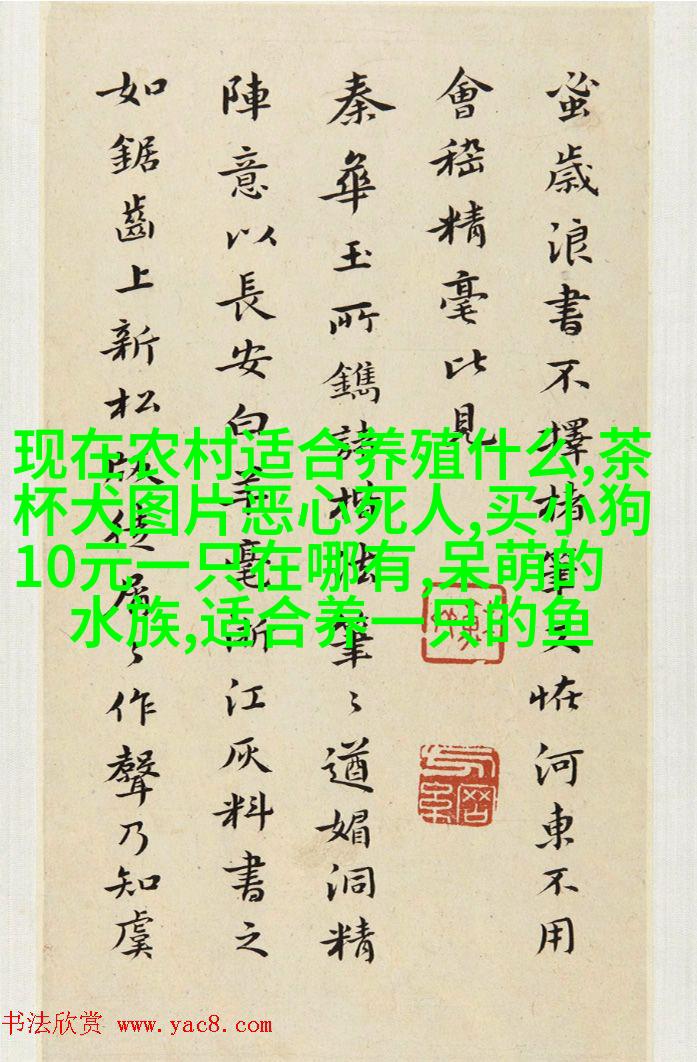 蚤歲浪書不擇楮筆又恠河東不用
會稽精毫比見
秦華玉所鐫諸楷法筆〻遒媚洞精
陣意以長安白羊毫浙江灰料書之
如鋸齒上新松版徒屑〻作聲乃知虞
现在农村适合养殖什么,茶
杯犬图片恶心死人,买小狗
10元一只在哪有,呆萌的
水族,适合养一只的鱼
书法欣赏 www.yac8.com